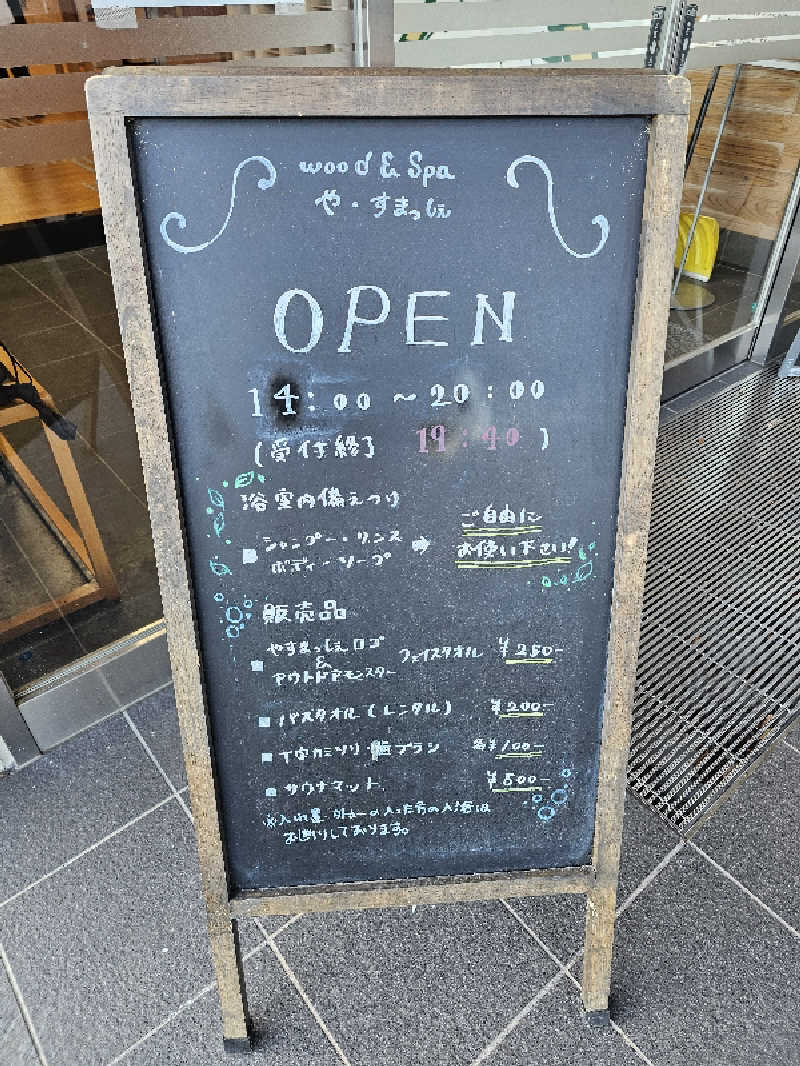 wood & Spa
や・すまっしぇ
OPEN
14:00 ～ 20:00
(受付終了 19:40)
浴室内備えつけ
■ シャンプー・リンス
ボディーソープ
➡ ご自由に
お使い下さい!
販売品
■ やすまっしぇロゴ
&
アウトドアモンスター
フェイスタオル ¥250-
■ バスタオル(レンタル) ¥200-
■ T字カミソリ・歯ブラシ 各¥100-
■ サウナマット ¥500-
※入れ墨・タトゥーの入った方の入浴は
お断りしております。